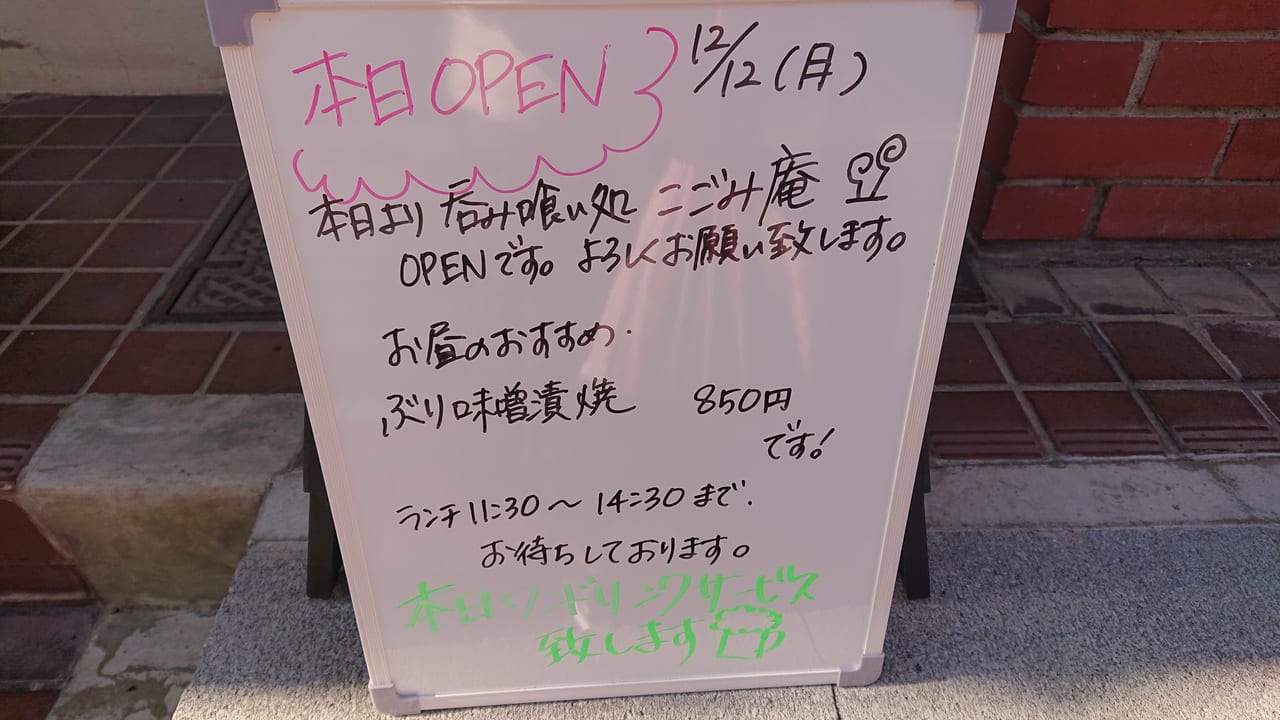 本日OPEN 12/12(月)
本日より 呑み喰い処 こごみ庵
OPENです。よろしくお願い致します。
お昼のおすすめ.
ぶり味噌漬焼 850円
です!
ランチ11:30～14:30まで.
お待ちしております。
本日ソドリンクサービス
致します